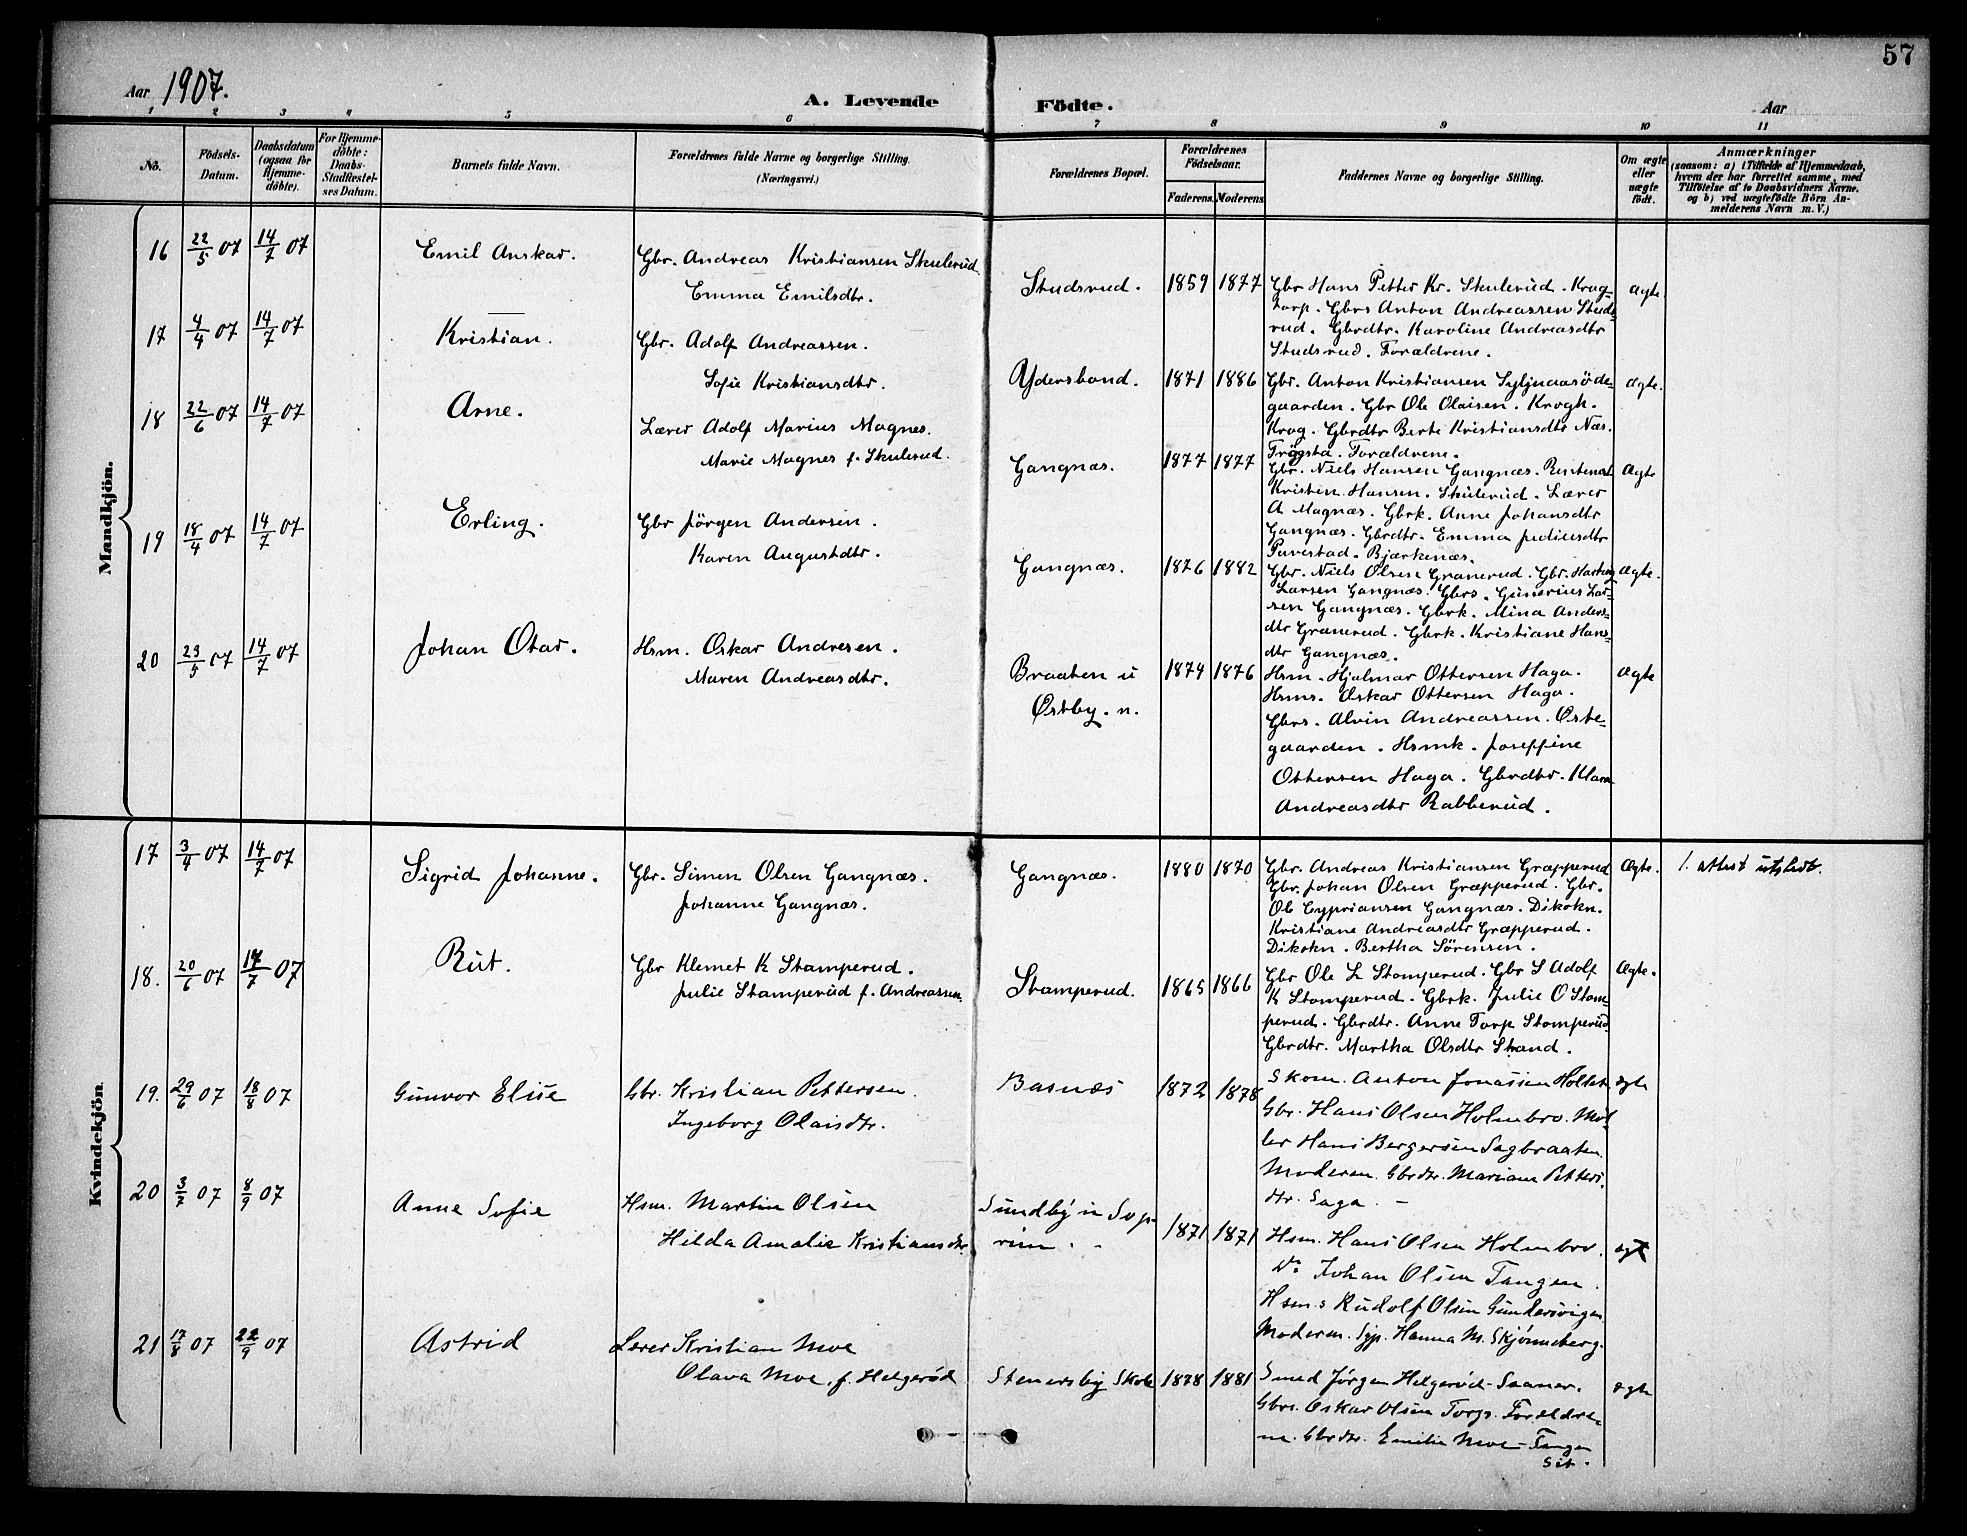 57
Aar 1907.
A. Levende Födte.
Aar
1 2 3 4 5 6 7 8 9 10 11
No.
Födsels-Datum.
Daabsdatum (ogsaa for Hjemme-döbte).
For Hjemme-döbte: Daabs-Stadfæstel-ses Datum.
Barnets fulde Navn.
Forældrenes fulde Navne og borgerlige Stilling.
(Næringsvei.)
Forældrenes Bopæl.
Forældrenes Födselsaar.
Faderens. Moderens
Faddernes Navne og borgerlige Stilling.
Om ægte eller uægte födt.
Anmærkninger
(saasom: a) i Tilfælde af Hjemmedaab,
hvem der har forrettet samme, med
Tilföielse af to Daabsvidners Navne,
og b) ved uægtefödte Börn An-
melderens Navn m. V.)
Mandkjön.
16 22/5 07 14/7 07 Emil Anskar.
Gbr. Andreas Kristiansen Skulerud
Emma Emilsdtr.
Studsrud. 1859 1877
Gbr Hans Petter Kr. Skulerud. Krog-
torp. Gbrs Anton Andreassen Studs-
rud. Gbrdtr. Karoline Andreasdtr
Studsrud. Forældrene.
ægte
17 4/4 07 14/7 07 Kristian.
Gbr. Adolf Andreassen.
Sofie Kristiansdtr.
Ydersbond. 1871 1886
Gbr. Anton Kristiansen Syljuaasøde-
gaarden. Gbr Ole Olaisen. Krogh.
Krog. Gbrdtr Berte Kristiansdtr Næs.
Trøgsta. Forældrene.
ægte.
18 22/6 07 14/7 07 Arne.
Lærer Adolf Marius Magnes.
Marie Magnes f. Skulerud.
Gangnæs. 1877 1877
Gbr. Niels Hansen Gangnæs. Rentenist
Kristen Hansen. Skulerud. Lærer
A Magnæs. Gbrk. Anne Johansdtr
Gangnæs. Gbrdtr. Emma Juliusdtr
Pavestad. Bjærkenæs.
Ægte
19 18/4 07 14/7 07 Erling.
Gbr Jörgen Andersen.
Karen Augustdtr.
Gangnæs. 1876 1882
Gbr. Niels Olsen Granerud. Gbr. Hartvig
Larsen Gangnæs. Gbrs. Gunerius Lar-
sen Gangnæs. Gbrk. Mina Anders-
dtr Granerud. Gbrk. Kristiane Hans-
dtr Gangnæs.
ægte.
20 23/5 07 14/7 07 Johan Otar.
Hsm. Oskar Andresen.
Maren Andreasdtr.
Braaten u
Østby. n.
1874 1876
Hsm. Hjalmar Ottersen Haga.
Hsms. Oskar Ottersen Haga.
Gbrs. Alvin Andreassen. Øste-
gaarden. Hsmk. Josefine
Ottersen Haga. Gbrdtr. Klara
Andreasdtr Rabberud.
ægte
Kvindekjön
17 3/4 07 14/7 07 Sigrid Johanne.
Gbr. Simen Olsen Gangnæs.
Johanne Gangnæs.
Gangnæs. 1880 1870
Gbr. Andreas Kristiansen Græpperud
Gbr. Johan Olsen Græpperud. Gbr.
Ole Cypriansen Gangnæs. Dikokn.
Kristiane Andreasdtr Græpperud.
Dikokn. Bertha Sørensen.
Ægte.
1. attest utstedt.
18. 20/6 07 14/7 07 Rut.
Gbr Klemet K Stamperud.
Julie Stamperud f. Andreassen
Stamperud. 1865 1866
Gbr Ole L Stomperud. Gbr S Adolf
K Stomperud. Gbrk. Julie O Stom-
perud. Gbrdtr. Anne Torp Stomperud.
Gbrdtr. Martha Olsdtr Strand.
Ægte.
19. 29/6 07 18/8 07 Gunvor Elise
Gbr. Kristian Pettersen.
Ingeborg Olaisdtr.
Basnæs 1872 1878
Skom. Anton Jonassen Holtet
Gbr. Hans Olsen Holmbro. Møl-
ler Hans Bergersen Sagbraaten.
Moderen. Gbrdtr. Mariam Petters.
dtr. Saga. –
ægte
20 3/7 07 8/9 07 Anne Sofie
Hsm. Martin Olsen
Hilda Amalie Kristiansdtr
Sundby u Sop-
rim. -
1871 1871
Hsm. Hans Olsen Holmbro.
Do Johan Olsen Tangen.
Hsm.s Rudolf Olsen Gundersvigen
Moderen. Syp. Hanna M. Skjønneberg.
ægte
21 17/8 07 22/9 07 Astrid
Lærer Kristian Moe
Olava Moe. f. Helgerød
Stenersby Skole 1878 1881
Smed Jørgen Helgerød – Saaner.
Gbrs. Oskar Olsen Torp. Forældre-
ne. Gbrdtr. Emilie Moe – Tangen
Sit.
ægte